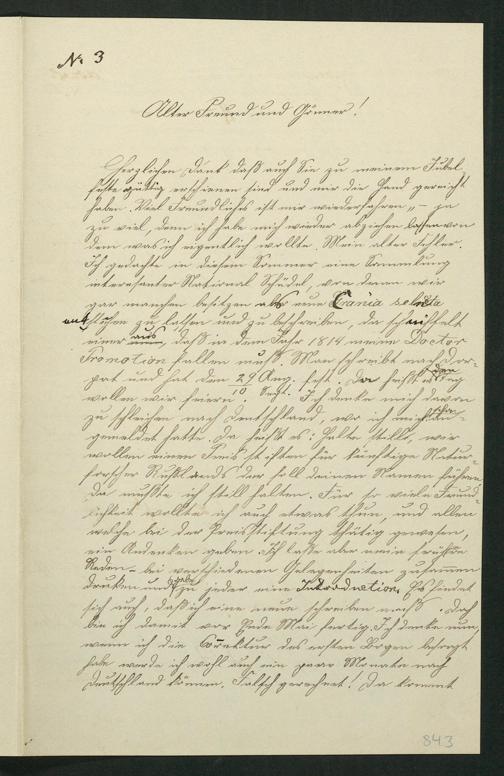 No 3
Alter Freund und Gönner!
Herzlichen Dank daß auch Sie zu meinem Jubel
feste gütig erschienen sind und mir die Hand gereicht
haben. Viel Freundliches ist mir wiederfahren, – ja
zu viel, denn ich habe mich wieder abziehen lassen von
dem was ich eigentlich wollte. Mein alter Fehler.
Ich gedachte in diesem Sommer eine Sammlung
interessanter National Schädel, von denen wir
gar manchen besitzen als neue Crania selecta
stechen zu lassen und zu beschreiben, da
einer aus, daß in dem Jahr 1814 meine Doctor
Promotion fallen muß. Man schreibt nach Dor-
pat und hat den 29 Aug. fest. Da heißt es: den Tag
wollen wir feiern! 10 Sept. Ich denke mich davon
zu schleichen nach Deutschland, wo ich mich schon an-
gemeldet hatte. Da heißt es: halte stille, wir
wollen einen Preis stiften für künftige Natur-
forscher Rußlands der soll deinen Namen führen,
da mußte ich still halten. Für so viele Freund-
lichkeit wollte ich auch etwas thun, und allen
welche bei der Preisstiftung thätig gewesen,
ein Andenken geben. Ich lasse aber meine
Reden – bei verschiedenen Gelegenheiten zusammen
drucken und gebe zu jeder eine Introduction. Es findet
sich auch, daß ich eine neue schreiben muß. Doch
bin ich damit vor Ende Mai fertig. Ich denke nun,
wenn ich die Correktur des ersten Bogen besorgt
habe werde ich wohl auch ein paar Monate nach
Deutschland können. Falsch gerechnet! Da kommt
843